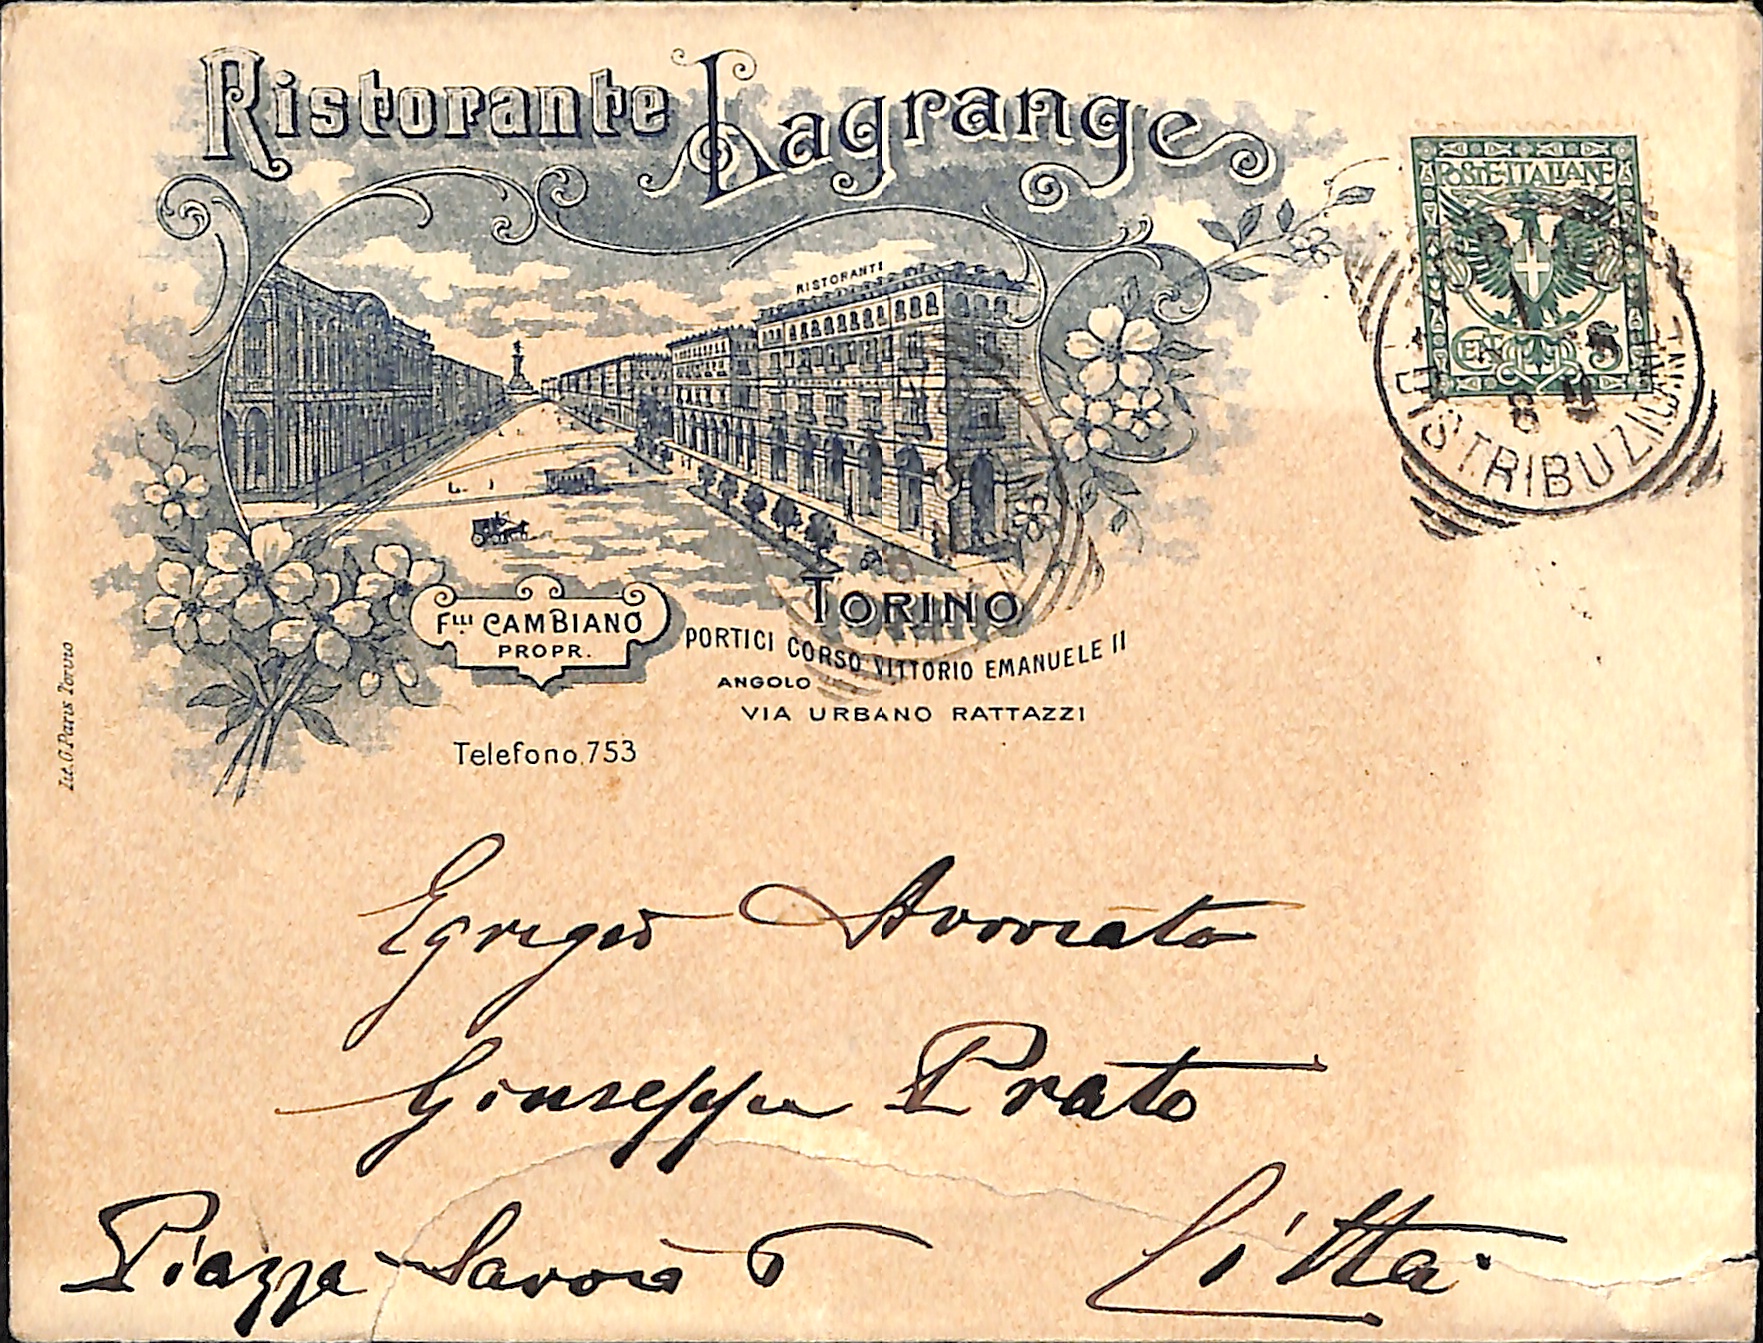 Ristorante Lagrange
POSTE ITALIANE
CEN 5
DISTRIBUZIONE
RISTORANTI
Flli CAMBIANO
PROPR.
TORINO
PORTICI CORSO VITTORIO EMANUELE II
ANGOLO
VIA URBANO RATTAZZI
Telefono.753
Lit. G. Paris Torino
Egregio Avvocato
Giuseppe Prato
Piazza Savoia 6 Città